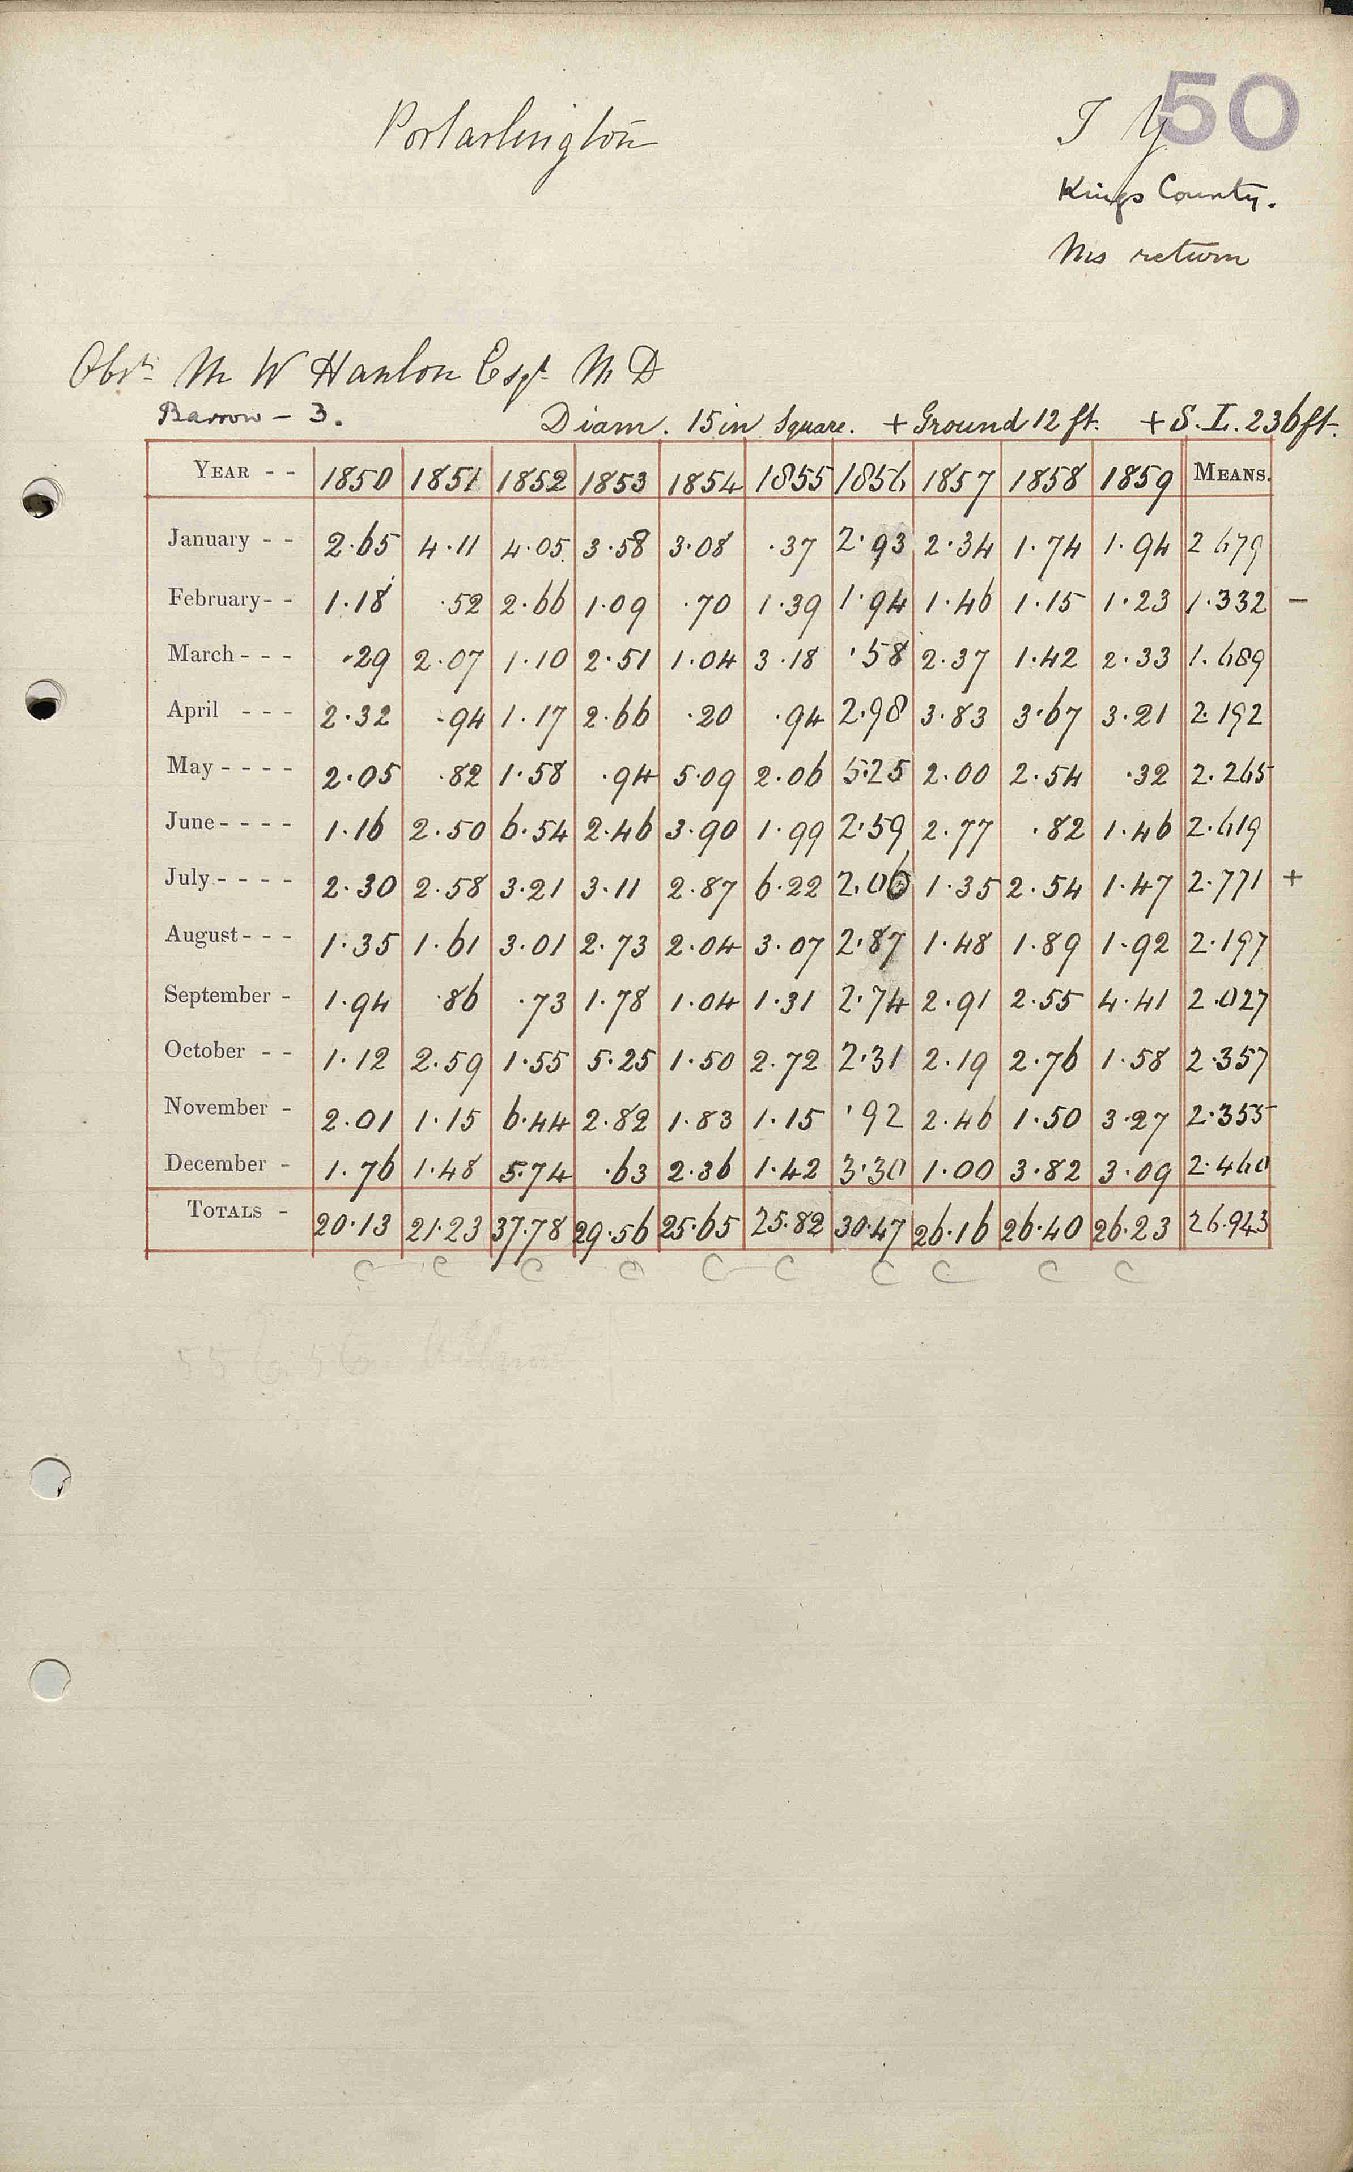 50
Portarlington I Y
Kings County.
Ms return
Obsr. M W Hanlon Esqr. M D
Barrow - 3. Diam. 15 in Square. + Ground 12 ft. + S.L. 236 ft.
YEAR - - 1850 1851 1852 1853 1854 1855 1856 1857 1858 1859 MEANS.
January - - 2.65 4.11 4.05 3.58 3.08 .37 2.93 2.34 1.74 1.94 2 679
February - - 1.18 .52 2.66 1.09 .70 1.39 1.94 1.46 1.15 1.23 1.332 -
March - - - .29 2.07 1.10 2.51 1.04 3.18 .58 2.37 1.42 2.33 1.689
April - - - 2.32 .94 1.17 2.66 .20 .94 2.98 3.83 3.67 3.21 2.192
May - - - - 2.05 .82 1.58 .94 5.09 2.06 5.25 2.00 2.54 .32 2.265
June - - - - 1.16 2.50 6.54 2.46 3.90 1.99 2.59 2.77 .82 1.46 2.619
July - - - - 2.30 2.58 3.21 3.11 2.87 6.22 2.06 1.35 2.54 1.47 2.771 +
August - - - 1.35 1.61 3.01 2.73 2.04 3.07 2.87 1.48 1.89 1.92 2.197
September - 1.94 .86 .73 1.78 1.04 1.31 2.74 2.91 2.55 4.41 2.027
October - - 1.12 2.59 1.55 5.25 1.50 2.72 2.31 2.19 2.76 1.58 2.357
November - 2.01 1.15 6.44 2.82 1.83 1.15 .92 2.46 1.50 3.27 2.355
December - 1.76 1.48 5.74 .63 2.36 1.42 3.30 1.00 3.82 3.09 2.460
TOTALS - 20.13 21.23 37.78 29.56 25.65 25.82 30.47 26.16 26.40 26.23 26.943
C C C C C C C C C C